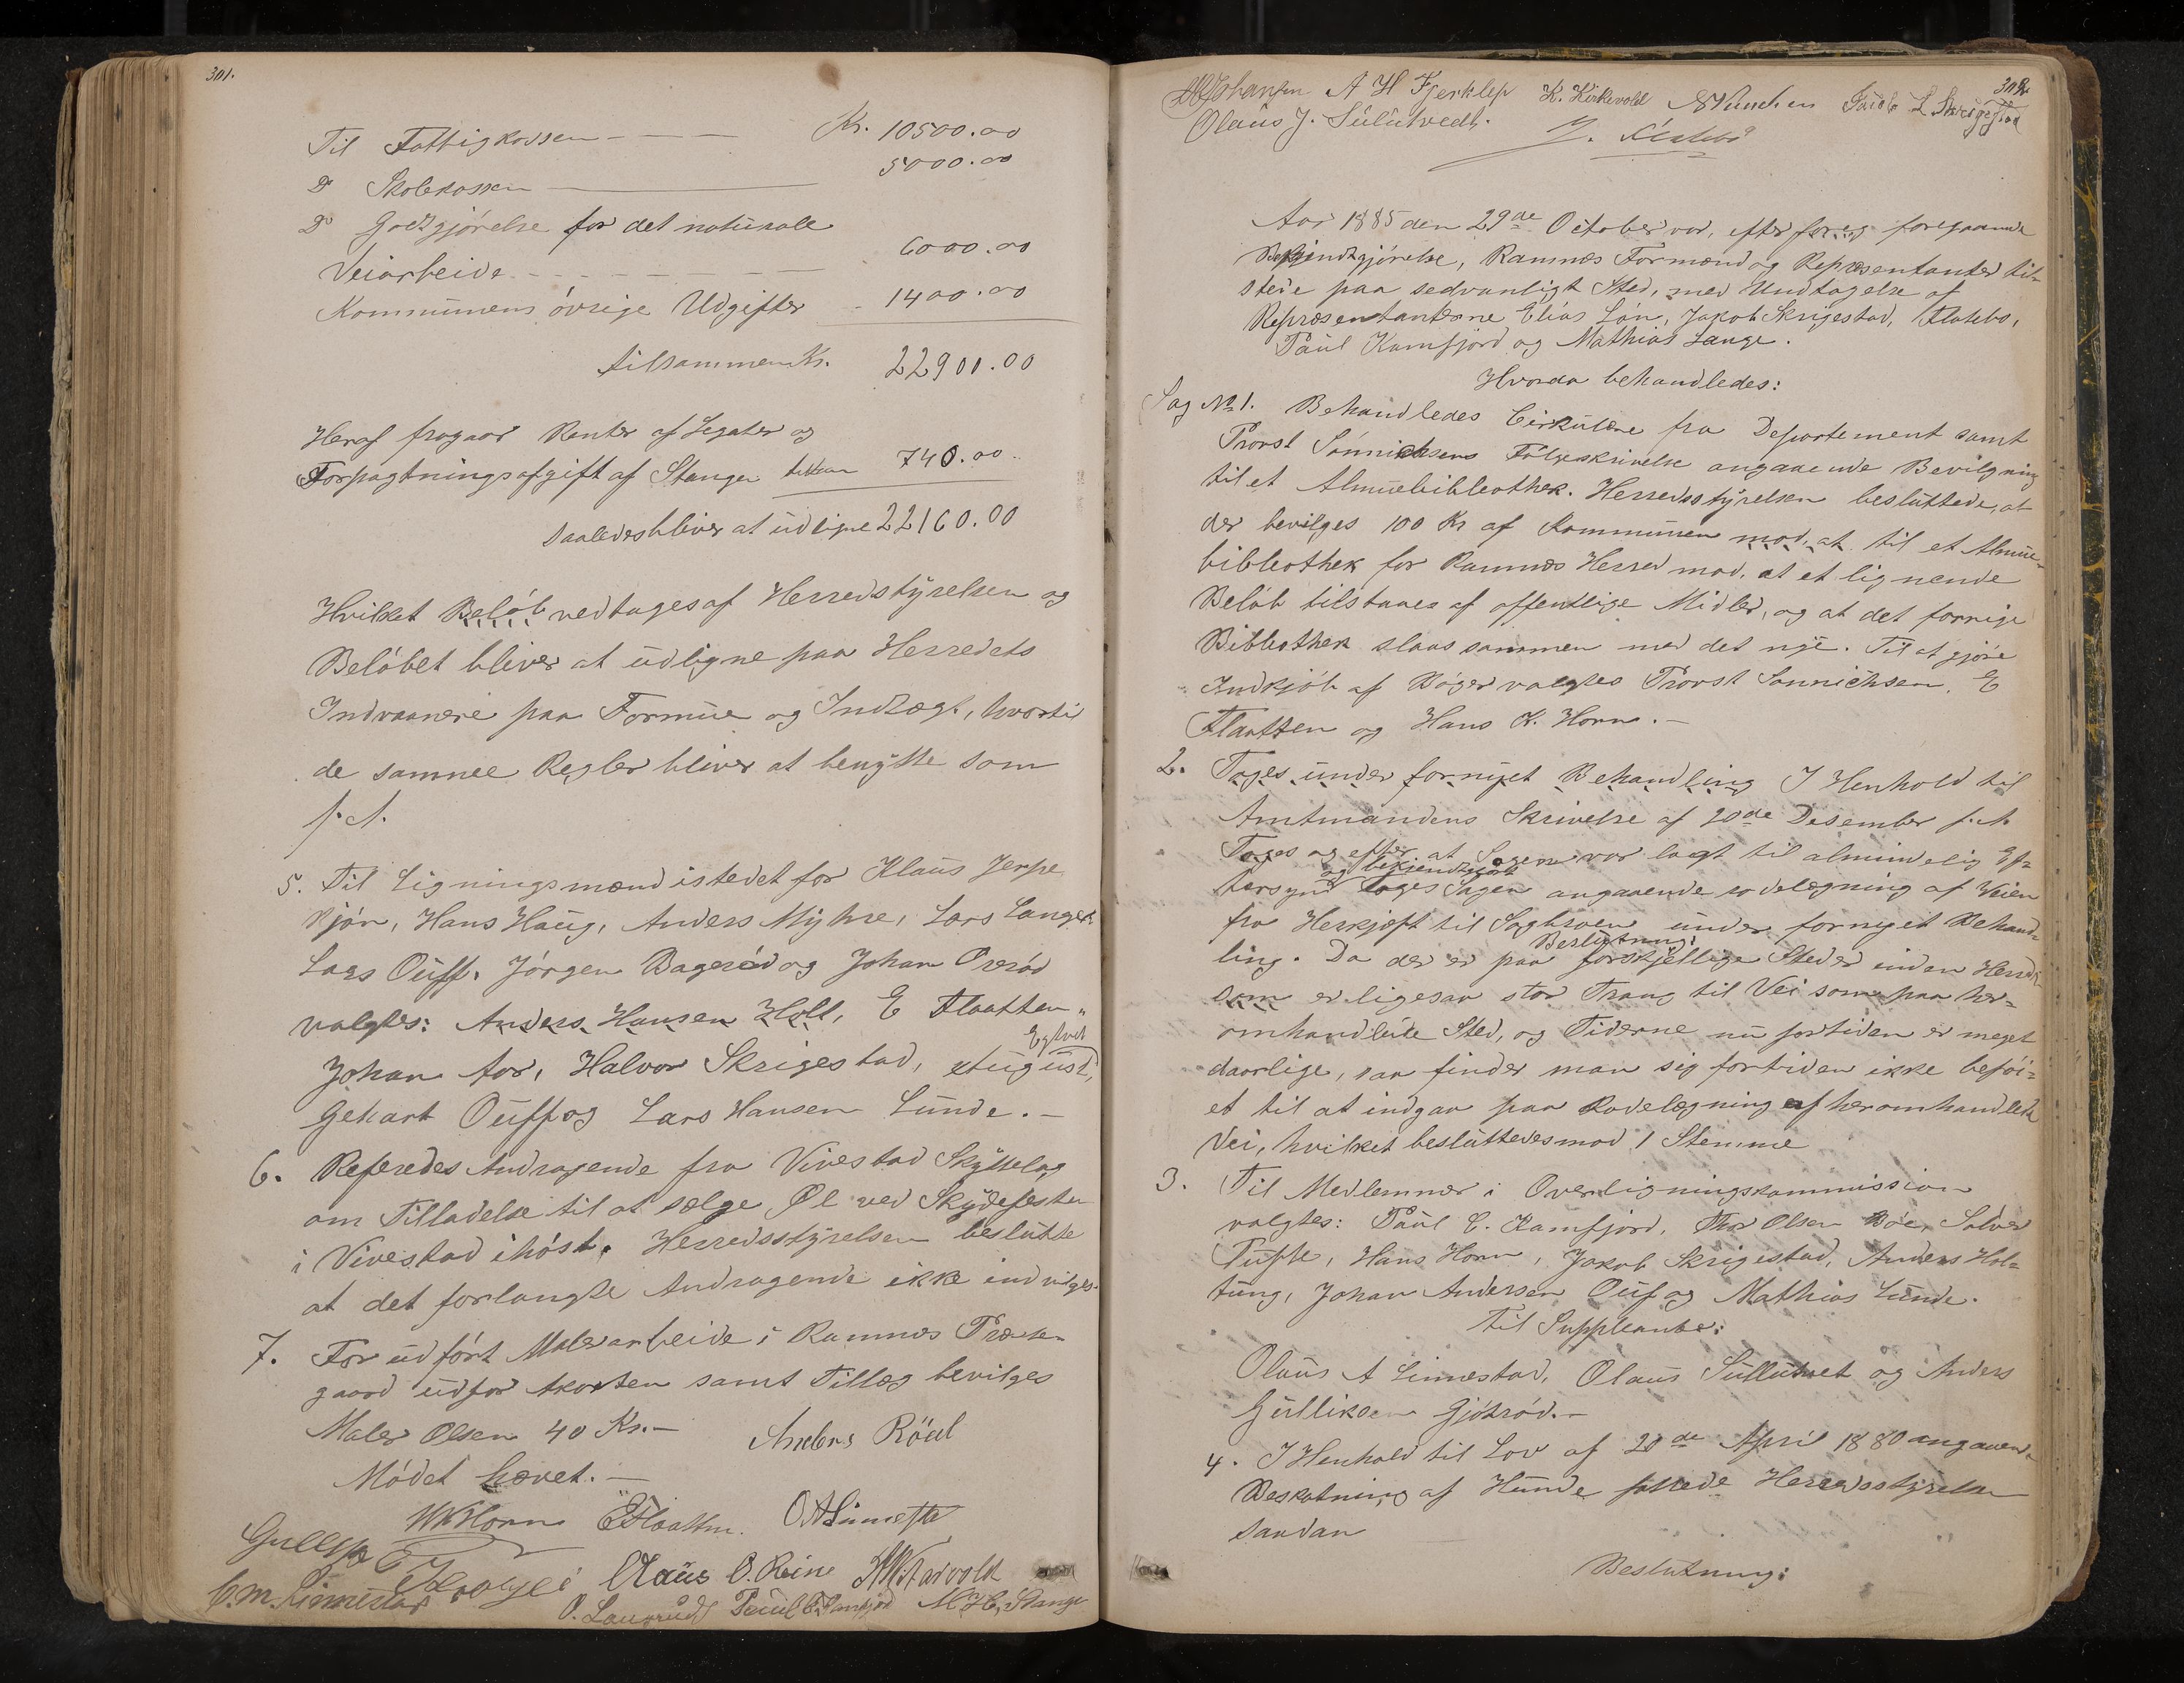 301.
Til Fattigkassen Kr. 10500.00
Do Skolekassen 5000.00
Do Godtgjörelse for det naturale
Veiarbeide 6000.00
Kommunens övrige Udgifter 1400.00
tilsammen Kr. 22900.00
Heraf fragaar Renter af Legater og
Forpagtningsafgift af Stange 740.00
saaledes bliver at udligne 22160.00
Hvilket Belöb vedtages af Herredstyrelsen og
Belöbet bliver at udligne paa Herredets
Indvaanere paa Formue og Indtægt, hvortil
de samme Regler bliver at benytte som
f. A.
5. Til Ligningsmænd istedet for Klaus Jerpe
Hans Haug, Anders Myhre, Lars
Lars Jörgen Bageröd og Johan
valgtes: Anders Hansen Holt, E Flaatten
Johan Aor, Halvor Skrigestad, August
Gehart og Lars Hansen Lunde.-
6. Referedes Andragende fra Vivestad Skyttelag
om Tilladelse til at sælge Øl ved Skydefesten
i Vivestad ihöst. Herredsstyrelsen beslutte
at det forlangte Andragende ikke indvilges.
7. For udfört Malerarbeide i Ramnes Præste-
gaard udfor Akorten samt Tillæg bevilges
Maler Olsen 40 Kr.-
Mödet hævet.-
Anders Röed
HKHorn EFlaatten. O.A.Linnesta
Klaus O. Reine
C. M. Linnestad O. Paul C. Kamfjord M. H. Stange
302
Johansen A H Fjerklep K. Kirkevold Jacob L Skrigestad
Olaus J. Sulutvedt.
Aar 1885 den 29de October var, efter foreg foregaaende
Bekjendtgjörelse, Ramnæs Formænd og Repræsentanter til-
stede paa sedvanligt Sted, med Undtagelse af
Repræsentanterne Elias Lön, Jakob Skrigestad, Flatebo,
Paul Kamfjord og Mathias Lange.
Hvorda behandledes:
Sag No 1. Behandledes Cirkulære fra Departement samt
Provst Sönnichsens Fölgeskrivelse angaaende Bevilgning
til et Almuebibleothek. Herredsstyrelsen besluttede, at
der bevilges 100 Kr af Kommunen mod, at til et Almue-
bibleothek for Ramnæs Herred mod, at et lignende
Belöb tilstaaes af offentlige Midler, og at det forrige
Bibleothek slaaes sammen med det nye. Til at gjöre
Indkjöb af Böger valgtes Provst Sonnichsen, E
Flaatten og Hans K. Horn.-
2. Toges under fornyet Behandling I Henhold til
Amtmandens Skrivelse af 20de Desember f. A.
Toges og efter at Sagen var lagt til almindelig Ef-
og bekjendtgjort
tersyn toges Sagen angaaende rodelægning af Veien
fra Herkjöft til under fornyet Behand-
Beslutning:
ling. Da der er paa forskjellige Steder inden Herredet
som er ligesaa stor Trang til Vei som paa her-
omhandlede Sted, og Tiderne nu fortiden er meget
daarlige, saa finder man sig fortiden ikke beföi-
et til at indgaa paa Rodelægning af heromhandlede
Vei, hvilket besluttedes mod 1 Stemme
3. Til Medlemmer i Overligningskommission
valgtes: Paul C. Kamfjord, Thor Olsen Böe, Sölver
Tufte, Hans Horn, Jakob Skrigestad, Anders Hol-
tung, Johan Andersen og Mathias Lunde.
Til Suppleanter:
Olaus A Linnestad, Olaus Sullutvet og Anders
Gulliksen Gjöteröd.-
4. I Henhold til Lov af 20de April 1880 angaaende
Beskatning af Hunde fattede Herredsstyrelsen
saadan
Beslutning: